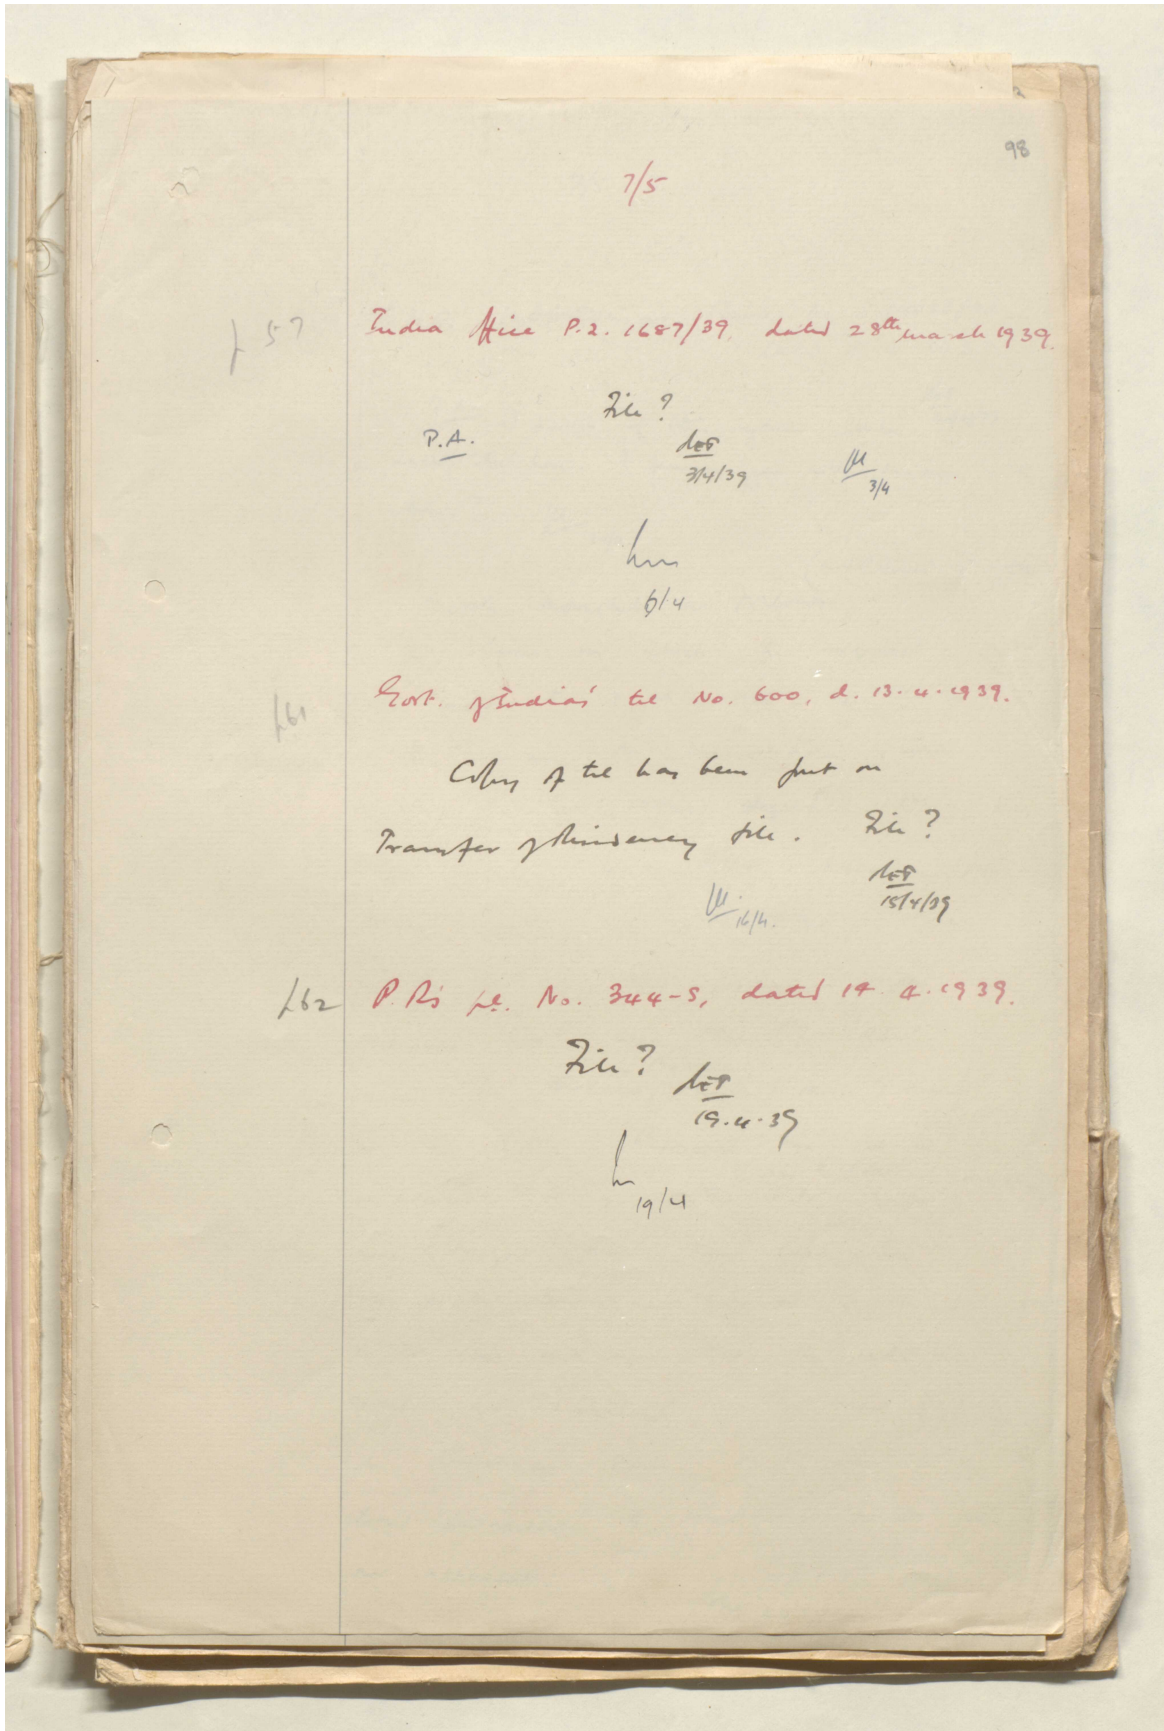 98
7/5
f 57
India Office P.Z. 1687/39, dated 28th March 1939.
File ?
P.A.
3/4/39
3/4
6/4
f 61
Govt. of India's tel No. 600, d. 13.4.1939.
Copy of tel has been put on
Transfer of Residency file. File ?
15/4/39
16/4.
f 62
P. R's p.l. No. 344-S, dated 14.4.1939.
File ?
19.4.39
19/4